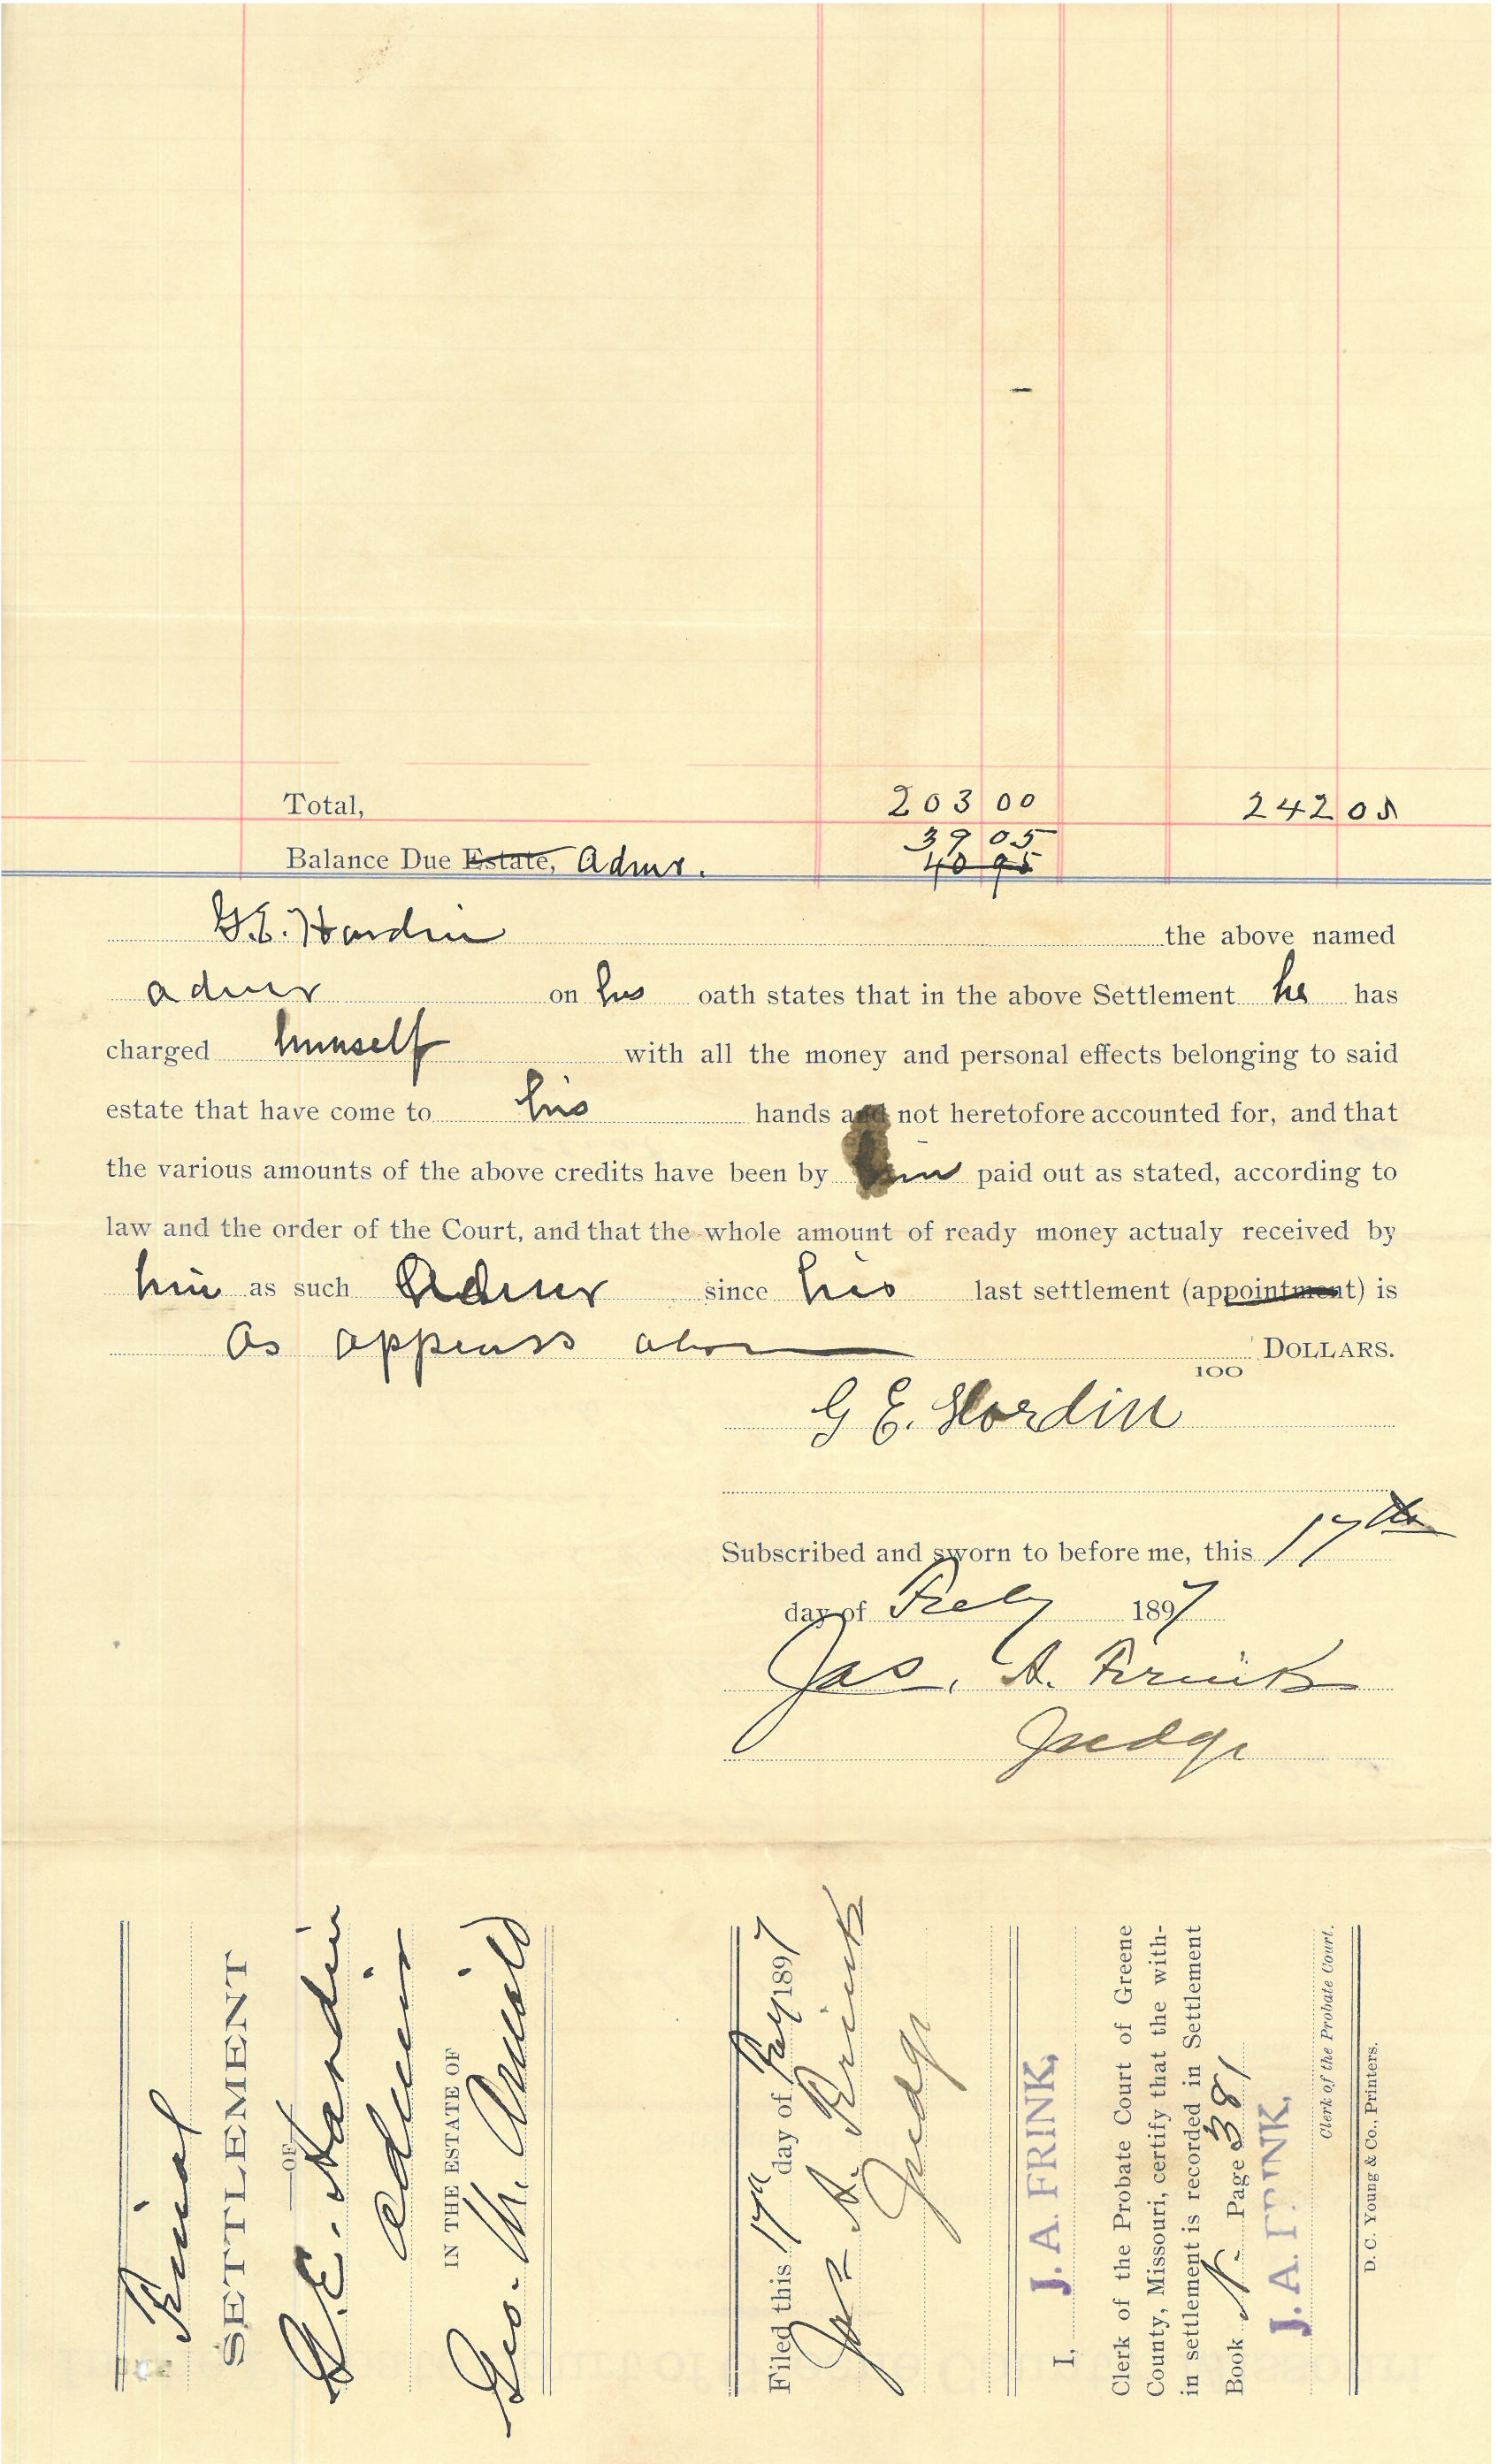 Total, 203 00 242 05
39 05
Balance Due Estate, Admr. 40 95
G.E. Hardin the above named
admr on his oath states that in the above Settlement he has
charged himself with all the money and personal effects belonging to said
estate that have come to his hands and not heretofore accounted for, and that
the various amounts of the above credits have been by him paid out as stated, according to
law and the order of the Court, and that the whole amount of ready money actualy received by
him as such Admr since his last settlement (appointment) is
As appears above DOLLARS.
100
G E. Hardin
Subscribed and sworn to before me, this 17th
day of Feby 1897
Jas. A. Frink
Judge
Final
SETTLEMENT
OF
G. E. Hardin
admr
IN THE ESTATE OF
Geo. M. Arnold
Filed this 17th day of Feby 1897
Jas A. Frink
Judge
I, J. A. FRINK,
Clerk of the Probate Court of Greene
County, Missouri, certify that the with-
in settlement is recorded in Settlement
Book N. Page 381
J. A. FRINK,
Clerk of the Probate Court.
D. C. Young & Co., Printers.